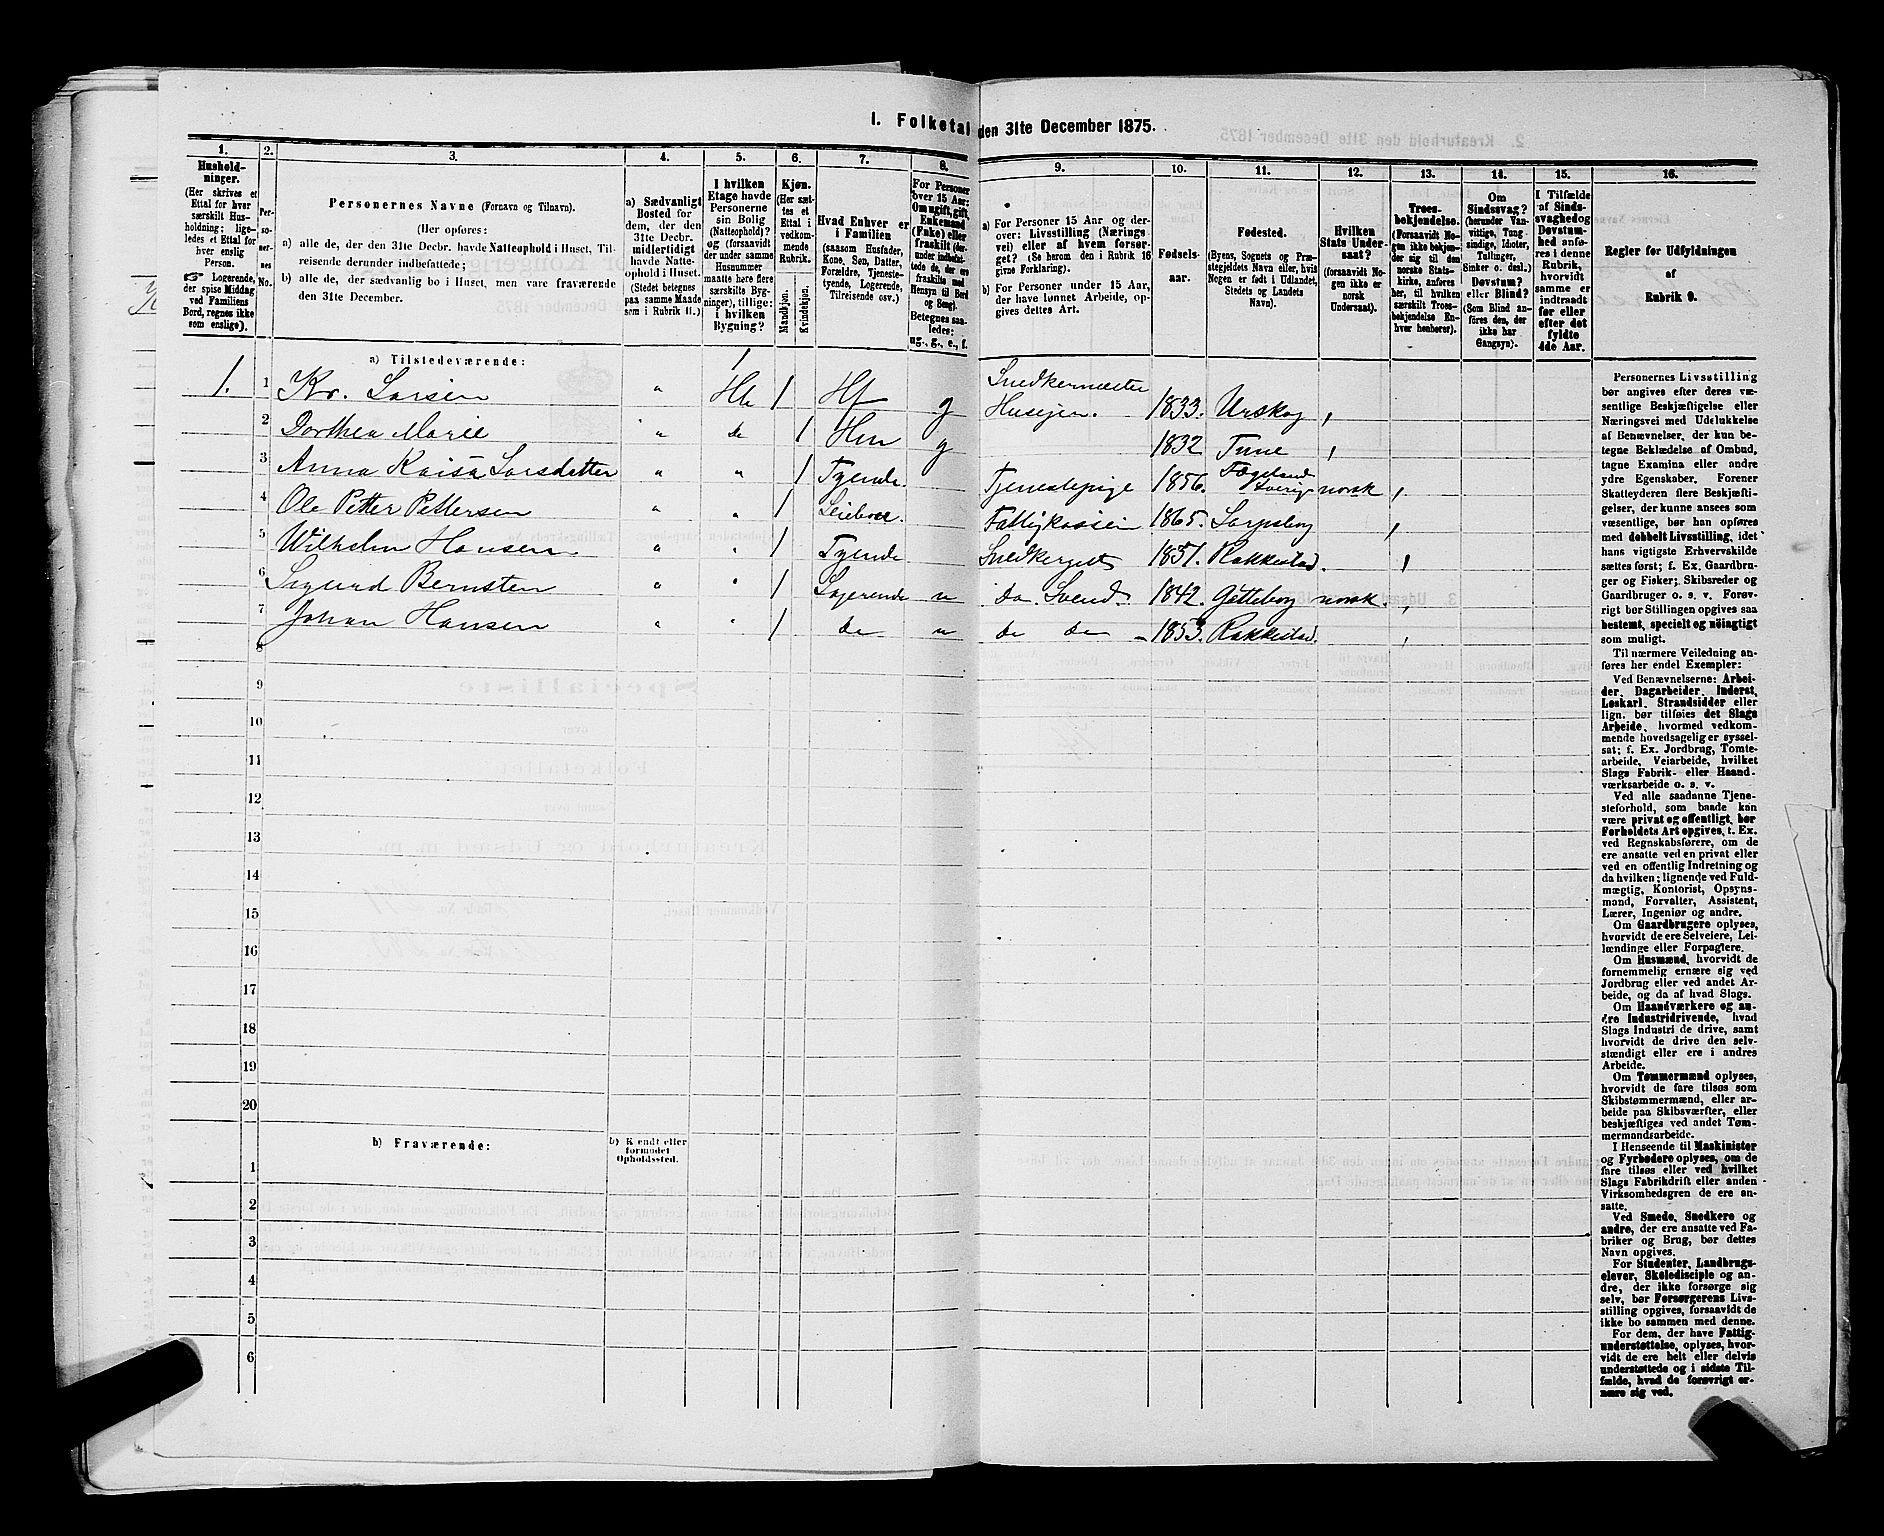 I. Folketal den 31te December 1875.
1.
Hushold-
ninger.
(Her skrives et
Ettal for hver
særskilt Hus-
holdning; lige-
ledes et Ettal for
hver enslig
Person.
☞ Logerende,
der spise Middag
ved Familiens
Bord, regnes ikke
som enslige).
2.
Per-
so-
ner-
nes
No.
3.
Personernes Navne (Fornavn og Tilnavn).
(Her opføres:
a) alle de, der den 31te Decbr. havde Natteophold i Huset, Til-
reisende derunder indbefattede;
b) alle de, der sædvanlig bo i Huset, men vare fraværende
den 31te December.
4.
a) Sædvanligt
Bosted for
dem, der den
31te Decbr.
midlertidigt
havde Natte-
ophold i Huset.
(Stedet betegnes
paa samme Maade
som i Rubrik II.)
5.
I hvilken
Etage havde
Personerne
sin Bolig
(Natteophold)?
og (forsaavidt
der under samme
Husnummer
maatte høre flere
særskilte Byg-
ninger), tillige:
i hvilken
Bygning?
6.
Kjøn.
(Her sæt-
tes et
Ettal i
vedkom-
mende
Rubrik.
Mandkjøn.
Kvindekjøn.
7.
Hvad Enhver er
i Familien
(saasom Husfader,
Kone, Søn, Datter,
Forældre, Tjeneste-
tyende, Logerende,
Tilreisende osv.)
8.
For Personer
over 15 Aar:
Om ugift, gift,
Enkemand
(Enke) eller
fraskilt (der-
under indbefat-
tede de, der ere
fraskilte med
Hensyn til Bord
og Seng).
Betegnes saa-
ledes:
ug., g., e., f.
9.
a) For Personer 15 Aar og der-
over: Livsstilling (Nærings-
vei) eller af hvem forsør-
get? (Se herom den i Rubrik 16
givne Forklaring).
b) For Personer under 15 Aar,
der have lønnet Arbeide, op-
gives dettes Art.
10.
Fødsels-
aar.
11.
Fødested.
(Byens, Sognets og Præ-
stegjeldets Navn eller, hvis
Nogen er født i Udlandet,
Stedets og Landets
Navn).
12.
Hvilken
Stats Under-
saat?
(forsaavidt No-
gen ikke er
norsk
Undersaat).
13.
Troes-
bekjendelse.
(Forsaavidt No-
gen ikke bekjen-
der sig til den
norske Stats-
kirke, anføres
her, til hvilken
særskilt Troes-
bekjendelse En-
hver henhører).
14.
Om
Sindssvag?
(herunder Van-
vittige, Tung-
sindige, Idioter,
Tullinger,
Sinker o. desl.)
Døvstum?
eller Blind?
(Som Blind an-
føres den, der
ikke har
Gangsyn).
15.
I Tilfælde
af Sinds-
svaghed og
Døvstum-
hed anfø-
res i denne
Rubrik,
hvorvidt
samme er
indtraadt
før eller
efter det
fyldte
4de Aar.
16.
Regler for Udfyldningen
af
Rubrik 9.
a) Tilstedeværende:
1
1. 1 Kr. Larsen " Hb 1 Hf g Snedkermester
Husejer. 1833. Urskog ,
2 Dorthea Marie " do 1 Hm g 1832 Tune ,
3 Anna Kaisa Larsdatter " " 1 Tyende Tjenestepige 1856. Fogeland
Sverig norsk ,
4 Ole Petter Pettersen " " 1 Leieboer. Fattigkassen 1865. Sarpsborg ,
5 Wilhelm Hansen " " 1 Tyende 1851. Rakkestad. ,
6 Sigurd Bernsten " " 1 Logerende u do. Svend. 1842. Gøtteborg norsk. ,
7 Johan Hansen " " 1 do u do do 1853. Rakkestad. ,
8
9
10
11
12
13
14
15
16
17
18
19
20
b) Fraværende:
b) Kendt eller
formodet
Opholdssted.
1
2
3
4
5
6
Personernes Livsstilling
bør angives efter deres væ-
sentlige Beskjæftigelse eller
Næringsvei med Udelukkelse
af Benævnelser, der kun be-
tegne Beklædelse af Ombud,
tagne Examina eller andre
ydre Egenskaber. Forener
Skatteyderen flere Beskjæfti-
gelser, der kunne ansees som
væsentlige, bør han opføres
med dobbelt Livsstilling, idet
hans vigtigste Erhvervskilde
sættes først; f. Ex. Gaardbru-
ger og Fisker; Skibsreder og
Gaardbruger o. s. v. Forøv-
rigt bør Stillingen opgives saa
bestemt, specielt og nöiagtigt
som muligt.
Til nærmere Veiledning an-
føres her endel Exempler:
Ved Benævnelserne: Arbei-
der, Dagarbeider, Inderst,
Løskarl, Strandsidder eller
lign. bør tilføies det Slags
Arbeide, hvormed vedkom-
mende hovedsagelig er syssel-
sat; f. Ex. Jordbrug, Tomte-
arbeide, Veiarbeide, hvilket
Slags Fabrik- eller Haand-
værksarbeide o. s. v.
Ved alle saadanne Tjene-
steforhold, som baade kan
være privat og offentligt, bør
Forholdets Art opgives, t. Ex.
ved Regnskabsførere, om de
ere ansatte ved en privat eller
ved en offentlig Indretning og
da hvilken; lignende ved Fuld-
mægtig, Kontorist, Opsyns-
mand, Forvalter, Assistent,
Lærer, Ingeniør og andre.
Om Gaardbrugere oplyses,
hvorvidt de ere Selveiere, Lei-
lændinge eller Forpagtere.
Om Husmænd, hvorvidt de
fornemmelig ernære sig ved
Jordbrug eller ved andet Ar-
beide, og da af hvad Slags.
Om Haandværkere og an-
dre industridrivende, hvad
Slags Industri de drive, samt
hvorvidt de drive den selv-
stændigt eller ere i andres
Arbeide.
Om Tømmermænd oplyses,
hvorvidt de fare tilsøs som
Skibstømmermænd, eller ar-
beide paa Skibsværfter, eller
beskjæftiges ved andet Tøm-
mermandsarbeide.
I Henseende til Maskinister
og Fyrbødere oplyses, om de
fare tilsøs eller ved hvilket
Slags Fabrikdrift eller anden
Virksomhedsgren de ere an-
satte.
Ved Smede, Snedkere og
andre, der ere ansatte ved Fa-
briker og Brug, bør dettes
Navn opgives.
For Studenter, Landbrugs-
elever, Skoledisciple og an-
dre, der ikke forsørge sig
selv, bør Forsørgerens Livs-
stilling opgives, forsaavidt de
ikke bo sammen med denne.
For dem, der have Fattig-
understøttelse, oplyses, hvor-
vidt de ere helt eller delvis
understøttede og i sidste Til-
fælde, hvad de forøvrigt er-
nære sig ved.